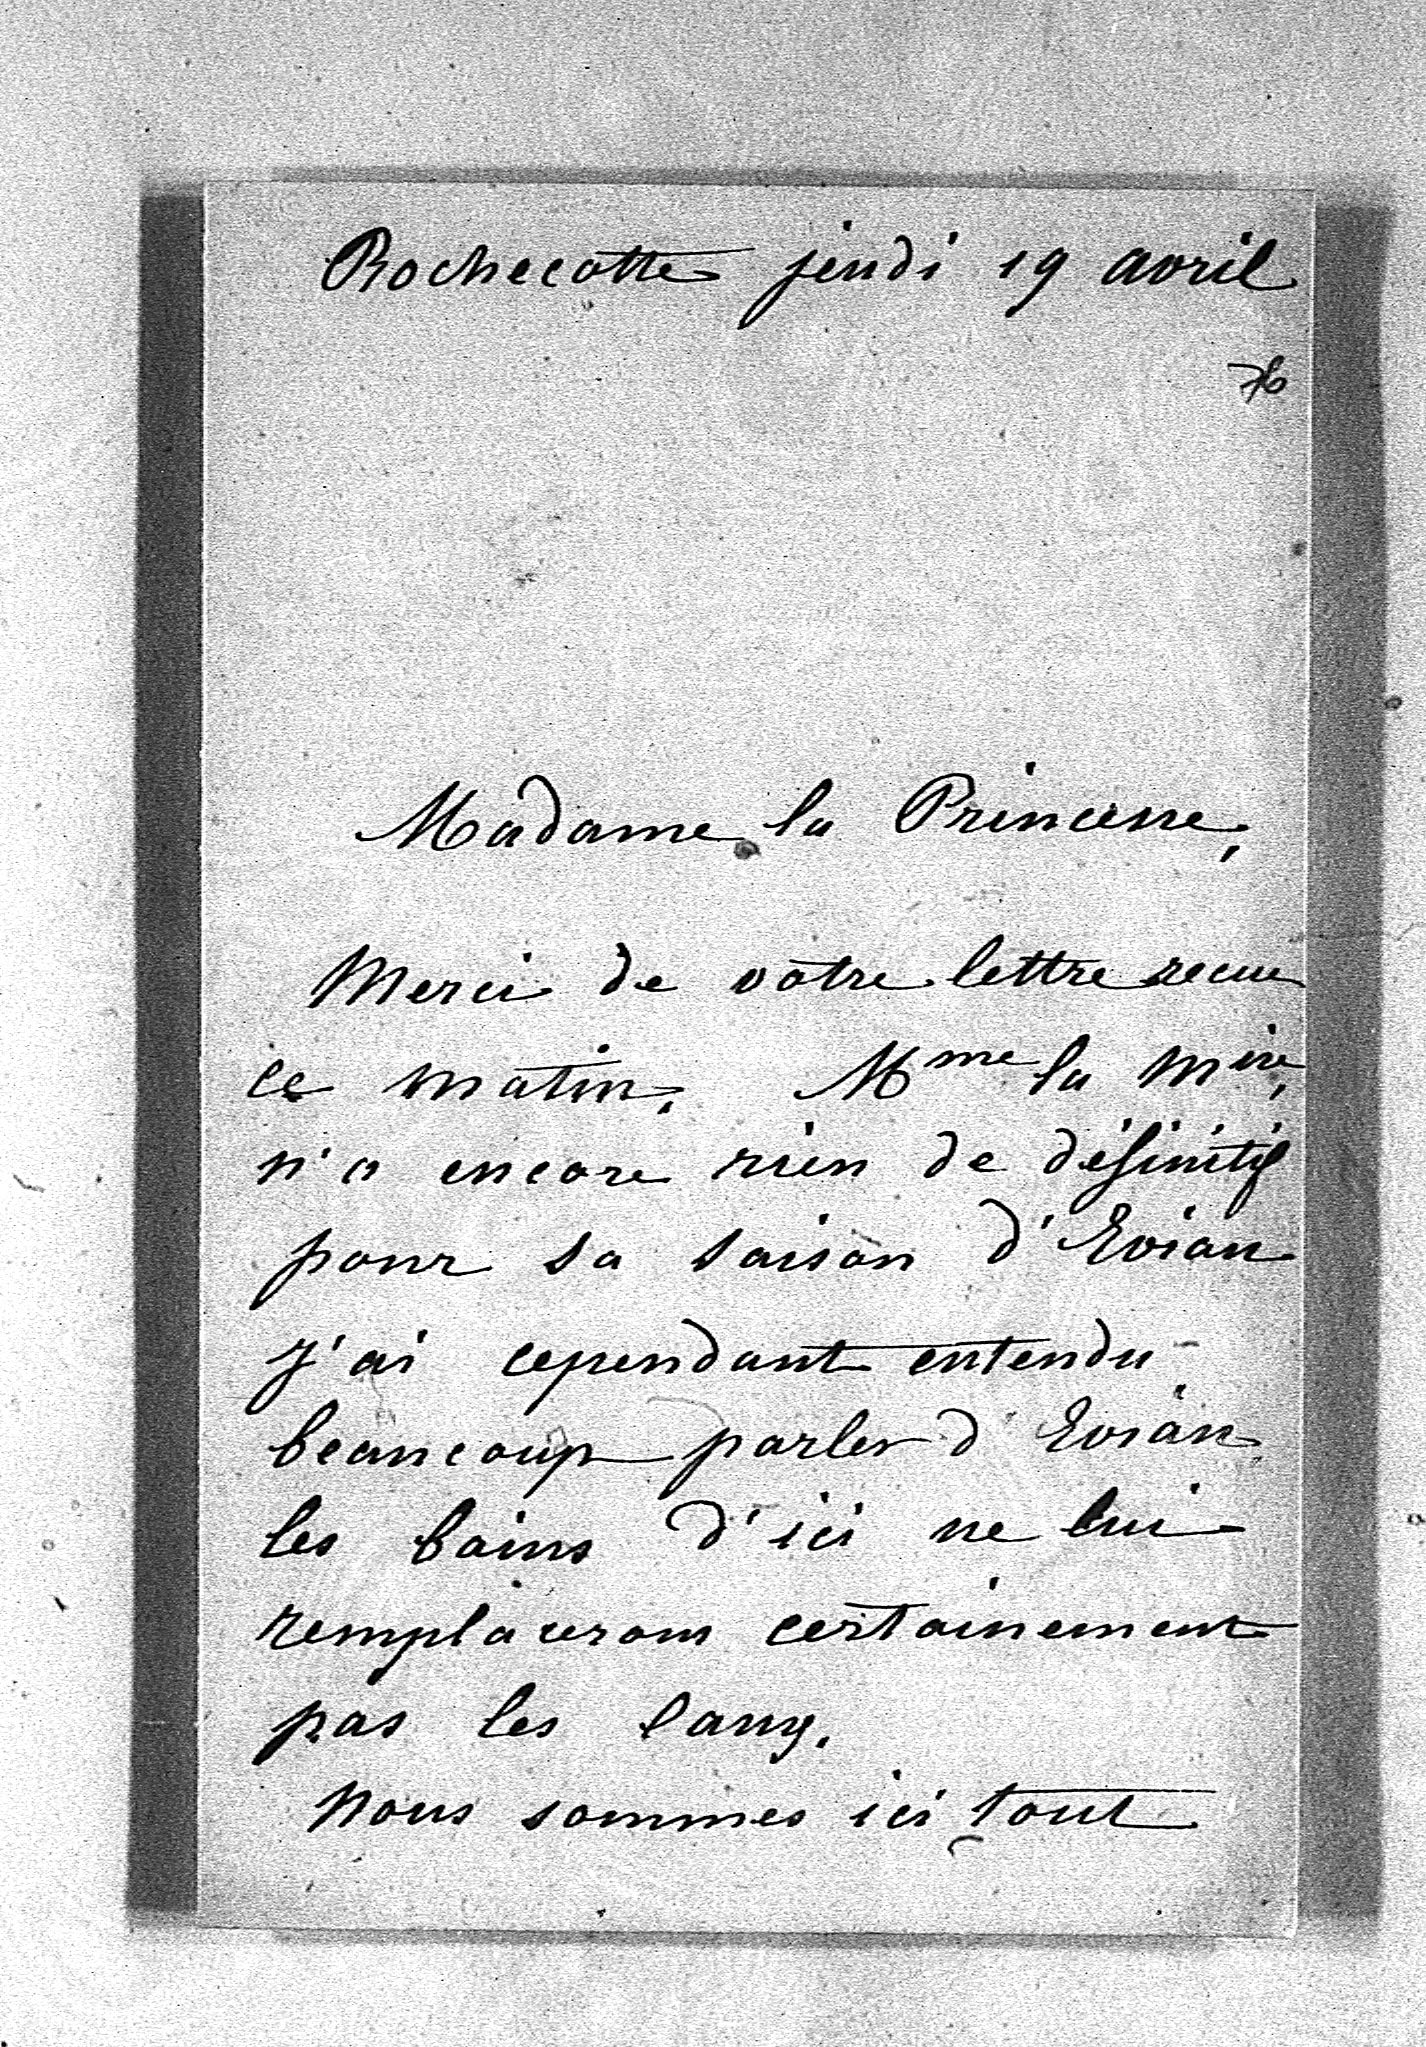 Rochecotte jeudi 19 avril
76
Madame la Princesse,
Merci de votre lettre recue
ce matin. Mme la mise,
n'a encore rien de définitif
pour sa saison d'Evian
j'ai cependant entendu
beaucoup parler d'Evian
les bains d'ici ne lui
remplaceront certainement
pas les eaux.
Nous sommes ici tout